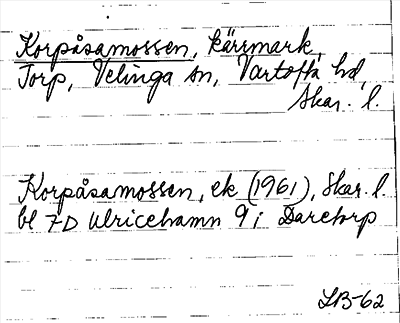 Korpåsamossen, kärrmark,
Torp, Velinga sn, Vartofta hd,
Skar. l.
Korpåsamossen, ek (1961), Skar. l.
bl 7D Ulricehamn 9 i Daretorp
LB-62